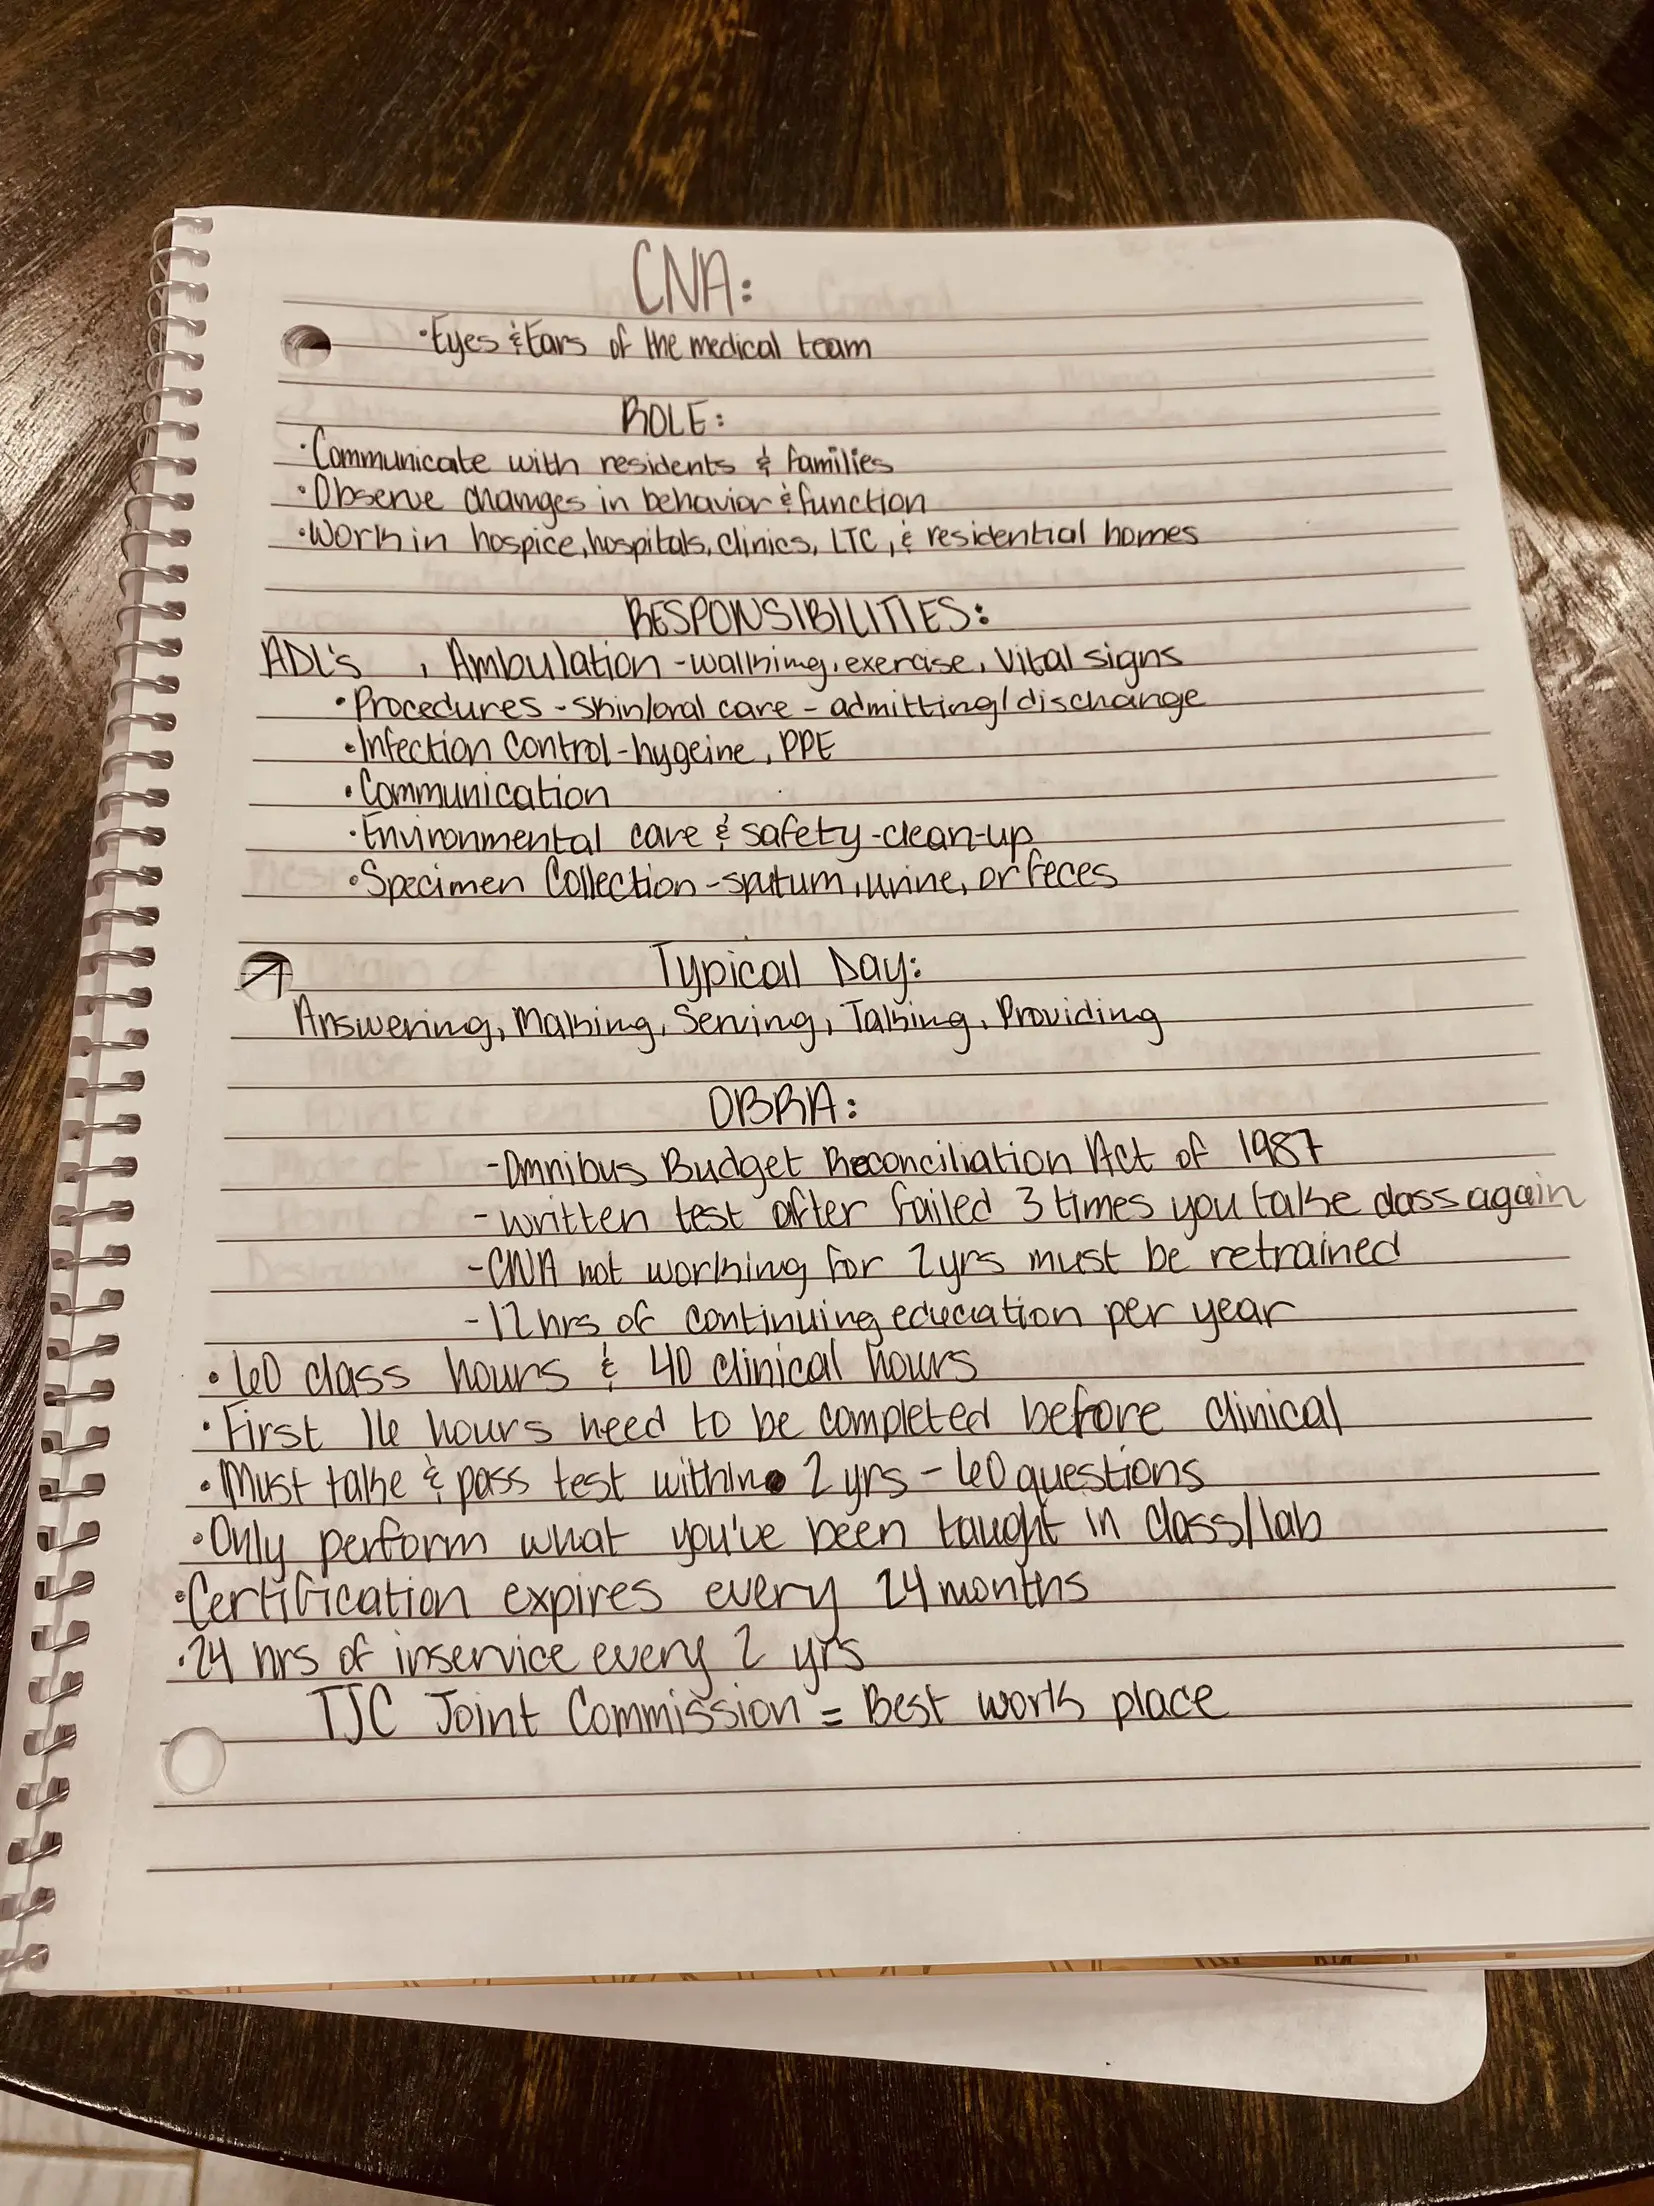 CNA:
·Eyes & Ears of the medical team
ROLE:
·Communicate with residents & families
·Observe changes in behavior & function
·Work in hospice, hospitals, clinics, LTC, & residential homes
RESPONSIBILITIES:
ADL's , Ambulation - walking, exercise, Vital signs
·Procedures - skin/oral care - admitting/discharge
·Infection Control - hygeine, PPE
·Communication
·Environmental care & safety - clean-up
·Specimen Collection - sputum, urine, or feces
Typical Day:
Answering, Making, Serving, Talking, Providing
OBRA:
- Omnibus Budget Reconciliation Act of 1987
- written test after failed 3 times you take class again
- CNA not working for 2yrs must be retrained
- 12 hrs of continuing education per year
· 60 class hours & 40 clinical hours
· First 16 hours need to be completed before clinical
· Must take & pass test within 2 yrs - 60 questions
· Only perform what you've been taught in class/lab
·Certification expires every 24 months
·24 hrs of inservice every 2 yrs
TJC Joint Commission = Best work place